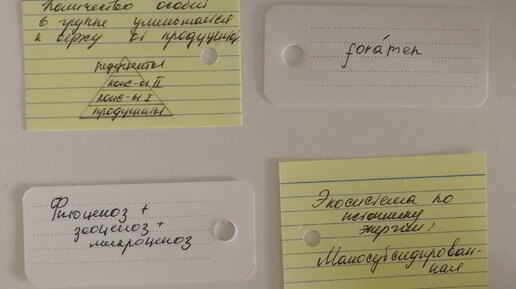 Количество особей
в группе уменьшается
к верху от продуцентов
редуценты
конс-ы II
конс-ы I
продуценты
forámen
Фитоценоз +
зооценоз +
микроценоз
Экосистема по
источнику
энергии:
Малосубсидирован-
ная